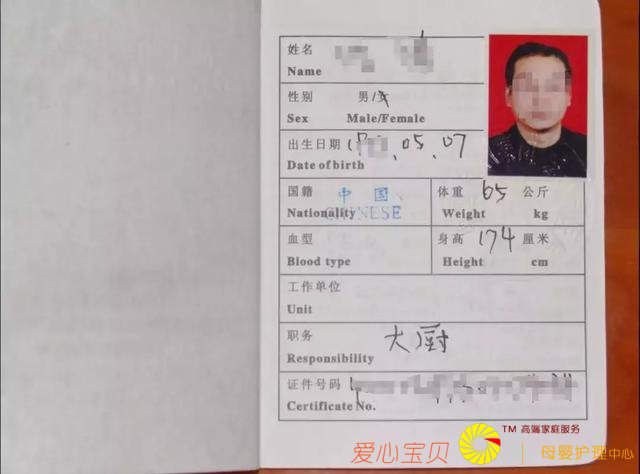 姓名
Name
性别 男/女
Sex Male/Female
出生日期 1 . 05 . 07
Date of birth
国籍 中国 体重 65 公斤
Nationality CHINESE Weight kg
血型 身高 174 厘米
Blood type Height cm
工作单位
Unit
职务 大厨
Responsibility
证件号码
Certificate No.
爱心宝贝 TM 高端家庭服务
母婴护理中心